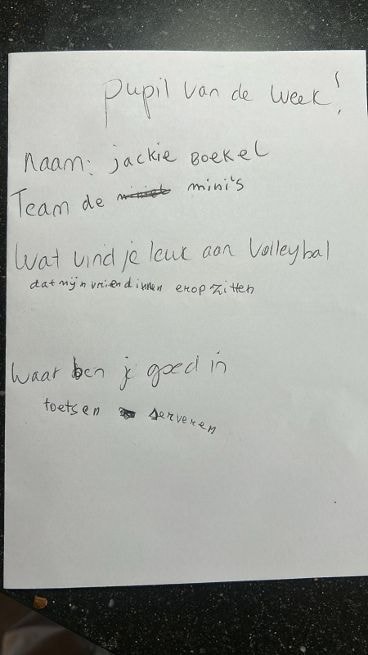 pupil van de week!
Naam: jackie Boekel
Team de mini's
Wat vind je leuk aan Volleybal
dat mijn vriendinnen erop zitten
Waar ben je goed in
toetsen serveren